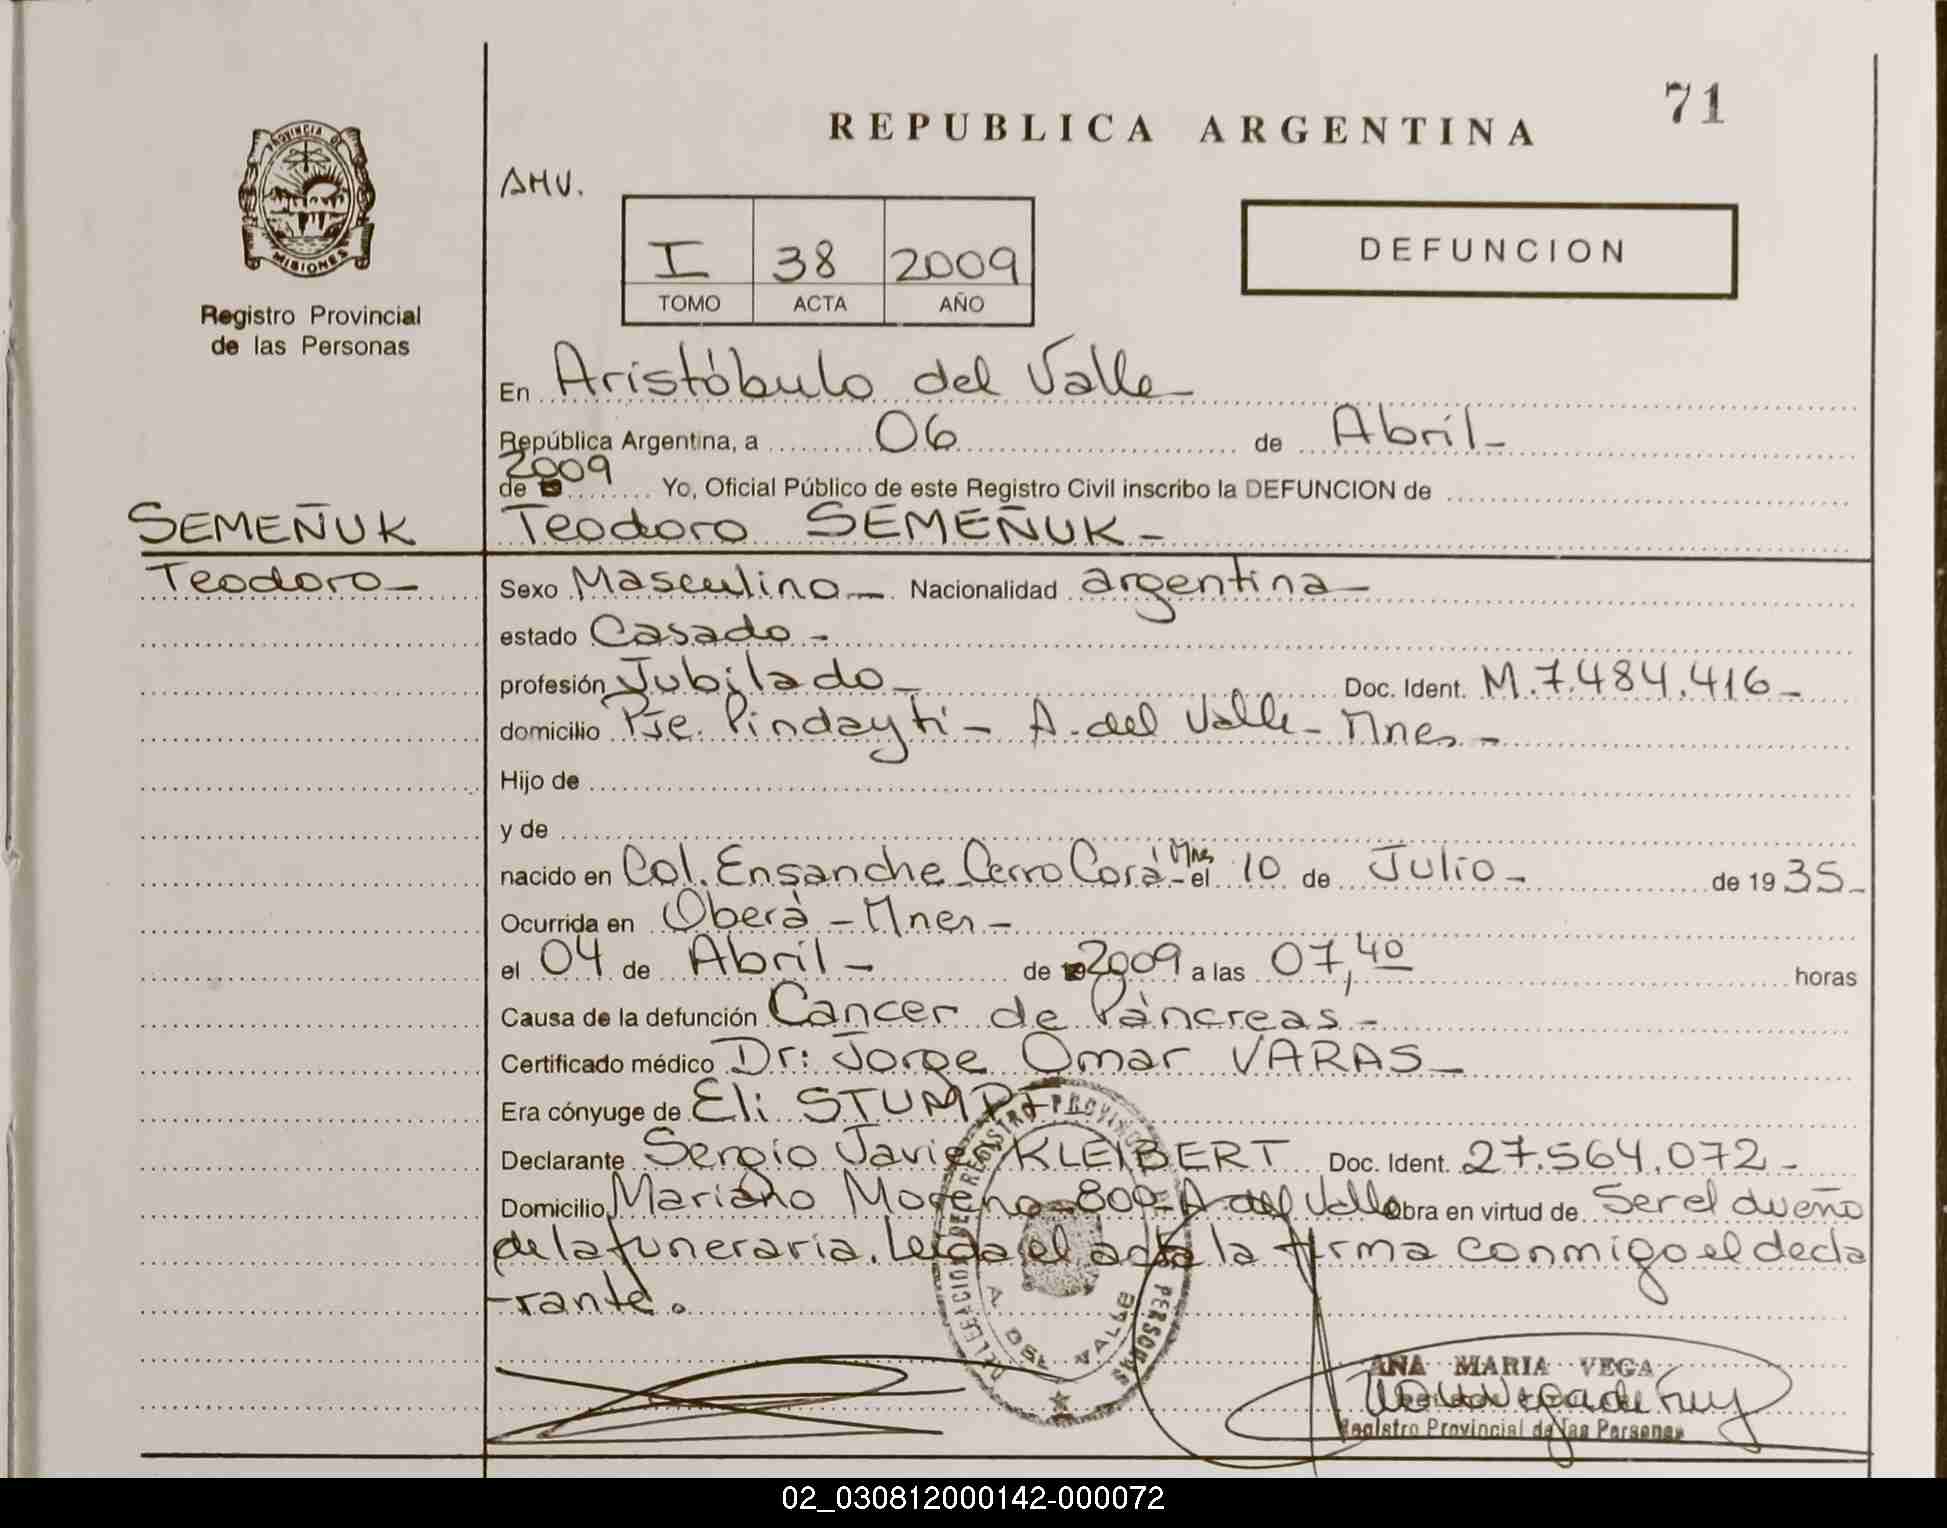 71
REPUBLICA ARGENTINA
PROVINCIA DE
MISIONES
AMV.
I 38 2009
TOMO ACTA AÑO
DEFUNCION
Registro Provincial
de las Personas
En Aristóbulo del Valle-
República Argentina, a 06 de Abril-
2009
de Yo, Oficial Público de este Registro Civil inscribo la DEFUNCION de
SEMEÑUK Teodoro SEMEÑUK-
Teodoro- Sexo Masculino- Nacionalidad argentina-
estado Casado-
profesión Jubilado- Doc. Ident. M.7.484.416-
domicilio Pje. Pindayti- A. del Valle- Mnes-
Hijo de
y de
nacido en Col. Ensanche Cerro Corá- Mnes el 10 de Julio- de 1935-
Ocurrida en Oberá-Mnes-
el 04 de Abril- de 2009 a las 07,40 horas
Causa de la defunción Cáncer de Páncreas-
Certificado médico Dr: Jorge Omar VARAS-
Era cónyuge de Eli STUMPF
Declarante Sergio Javier KLEIBERT Doc. Ident. 27.564.072-
Domicilio Mariano Moreno-800-A. del Valle Obra en virtud de Ser el dueño
de la funeraria. Leída el acta la firma conmigo el decla
-rante.
DELEGACION DEL REGISTRO PROVINCIAL DE PERSONAS
A. DEL VALLE
ANA MARIA VEGA
Registro Provincial de las Personas
02_030812000142-000072